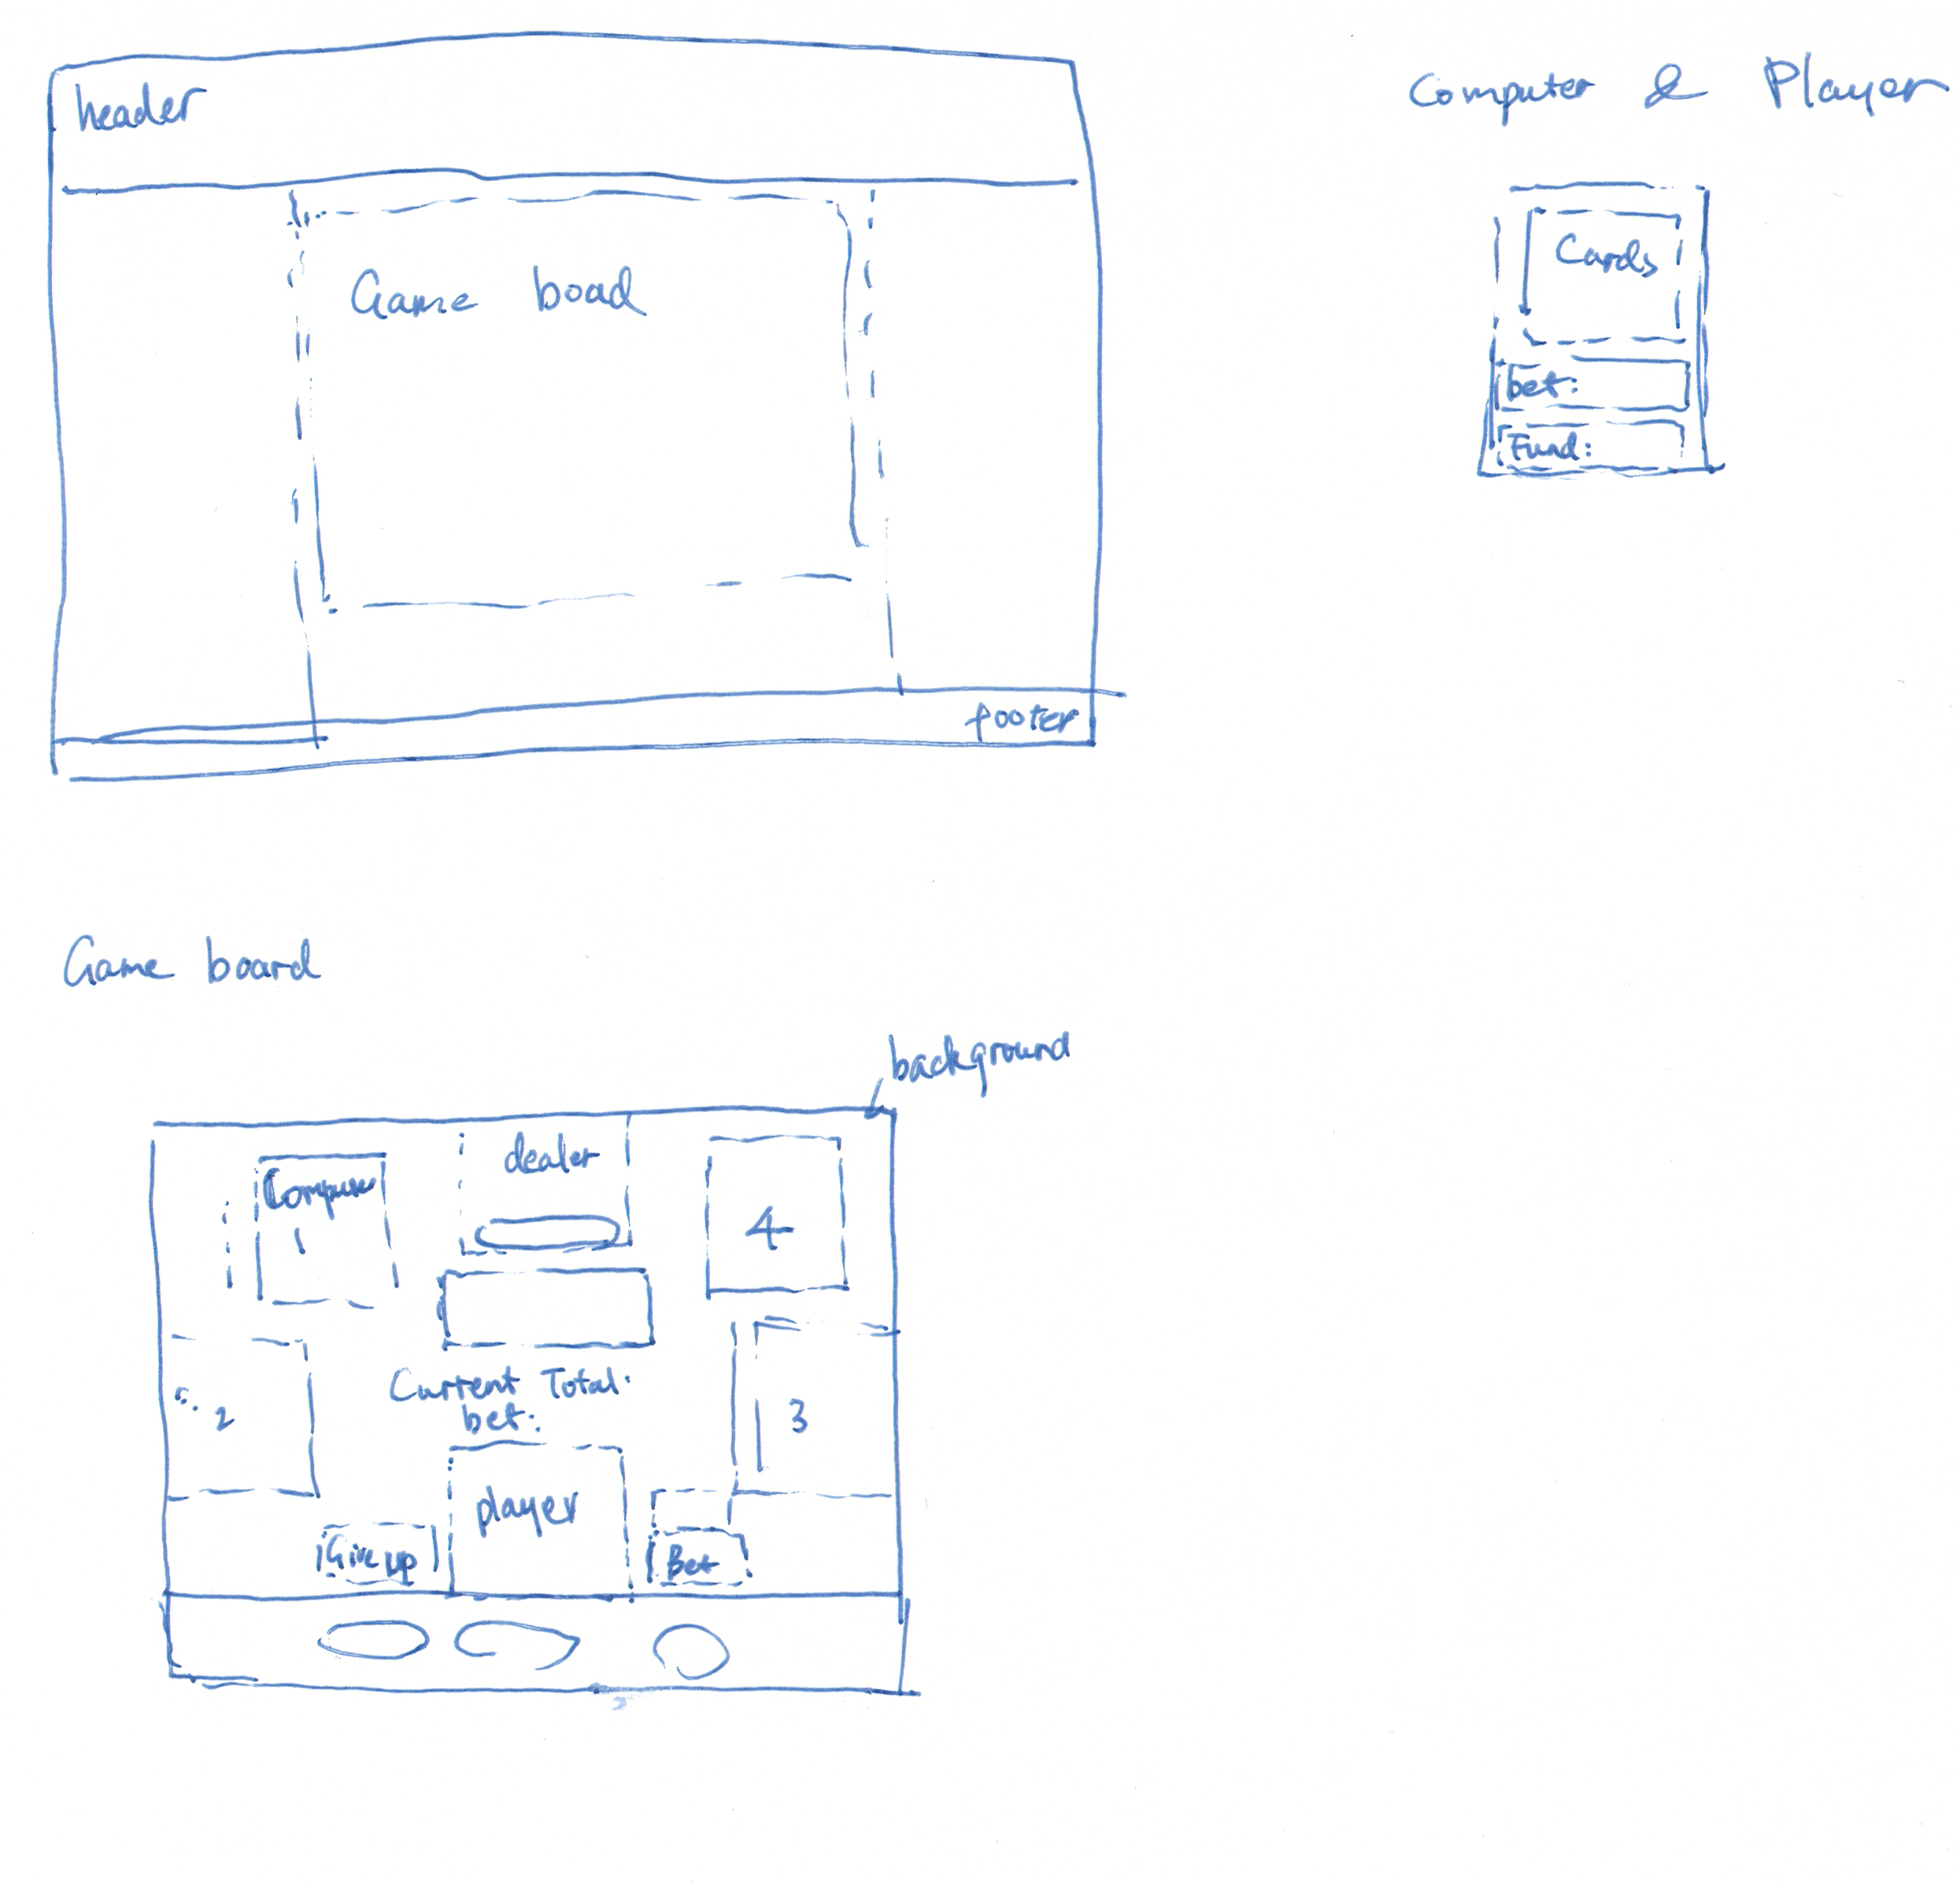 header
Game boad
footer
Computer & Player
Cards
bet:
Fund:
Game board
background
dealer
Computer
1
4
2
3
Current Total
bet:
player
Give up
Bet